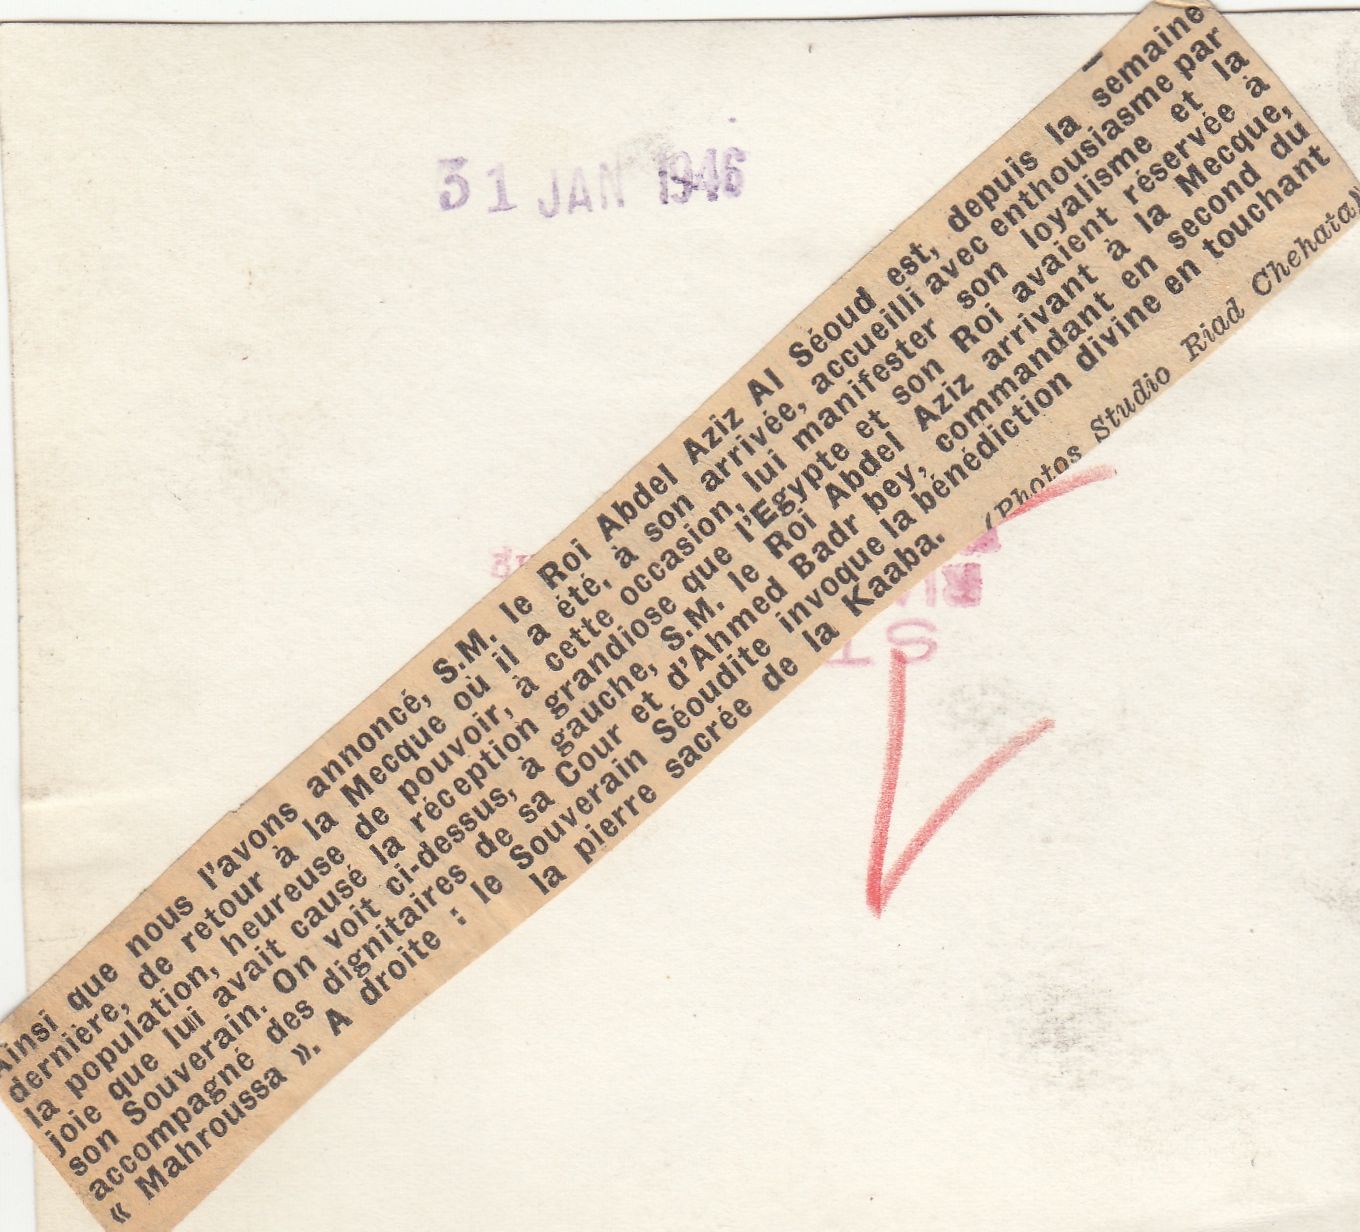 31 JAN 1946
Ainsi que nous l'avons annoncé, S.M. le Roi Abdel Aziz Al Séoud est, depuis la semaine
dernière, de retour à la Mecque où il a été, à son arrivée, accueilli avec enthousiasme par
la population, heureuse de pouvoir, à cette occasion, lui manifester son loyalisme et la
joie que lui avait causé la réception grandiose que l'Egypte et son Roi avaient réservée à
son Souverain. On voit ci-dessus, à gauche, S.M. le Roi Abdel Aziz arrivant à la Mecque,
accompagné des dignitaires de sa Cour et d'Ahmed Badr bey, commandant en second du
« Mahroussa ». A droite : le Souverain Séoudite invoque la bénédiction divine en touchant
la pierre sacrée de la Kaaba.
(Photos Studio Riad Chehata)